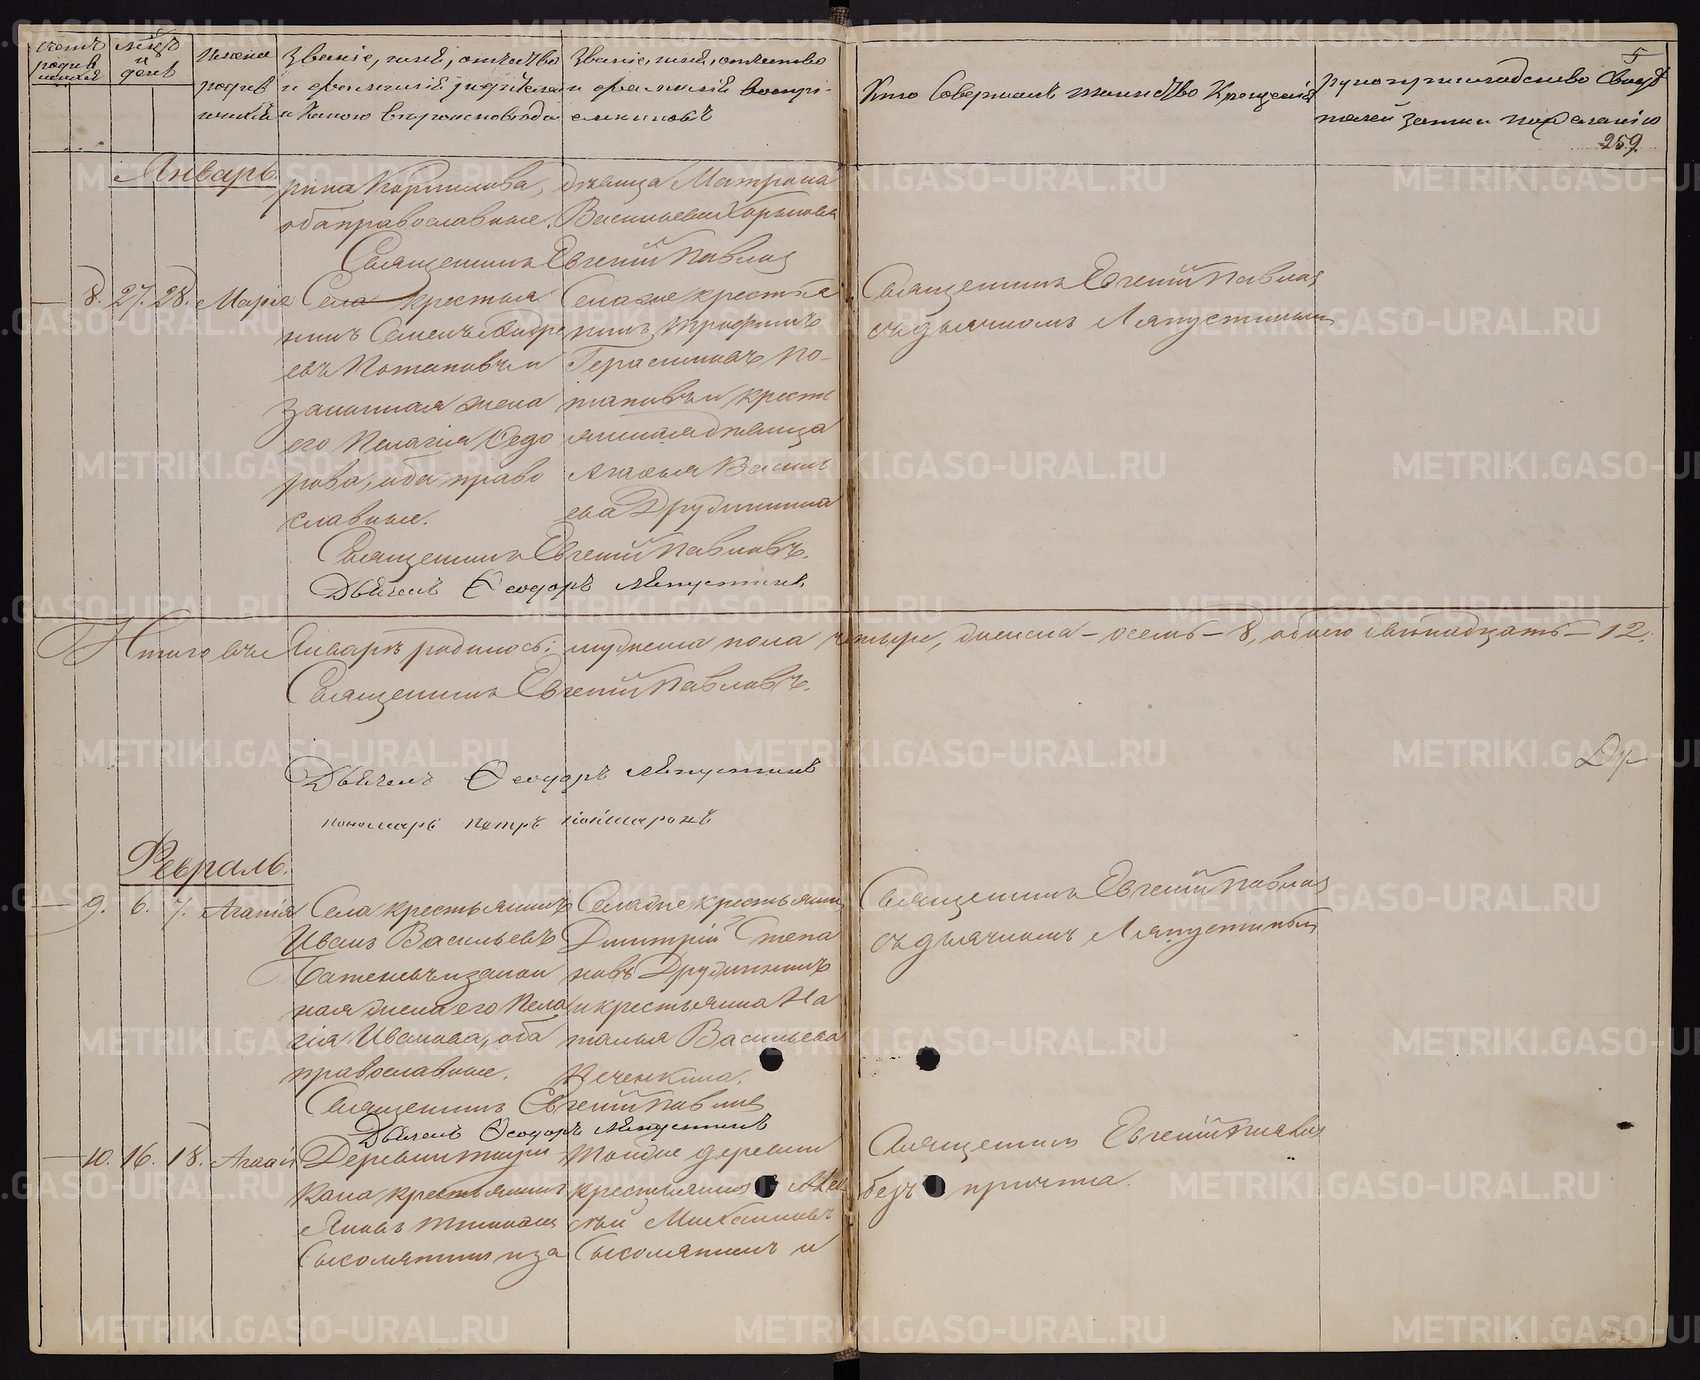 счетъ родив
мѣсяцъ и день
Имена родив
Званіе, имя, отчество и фамилія родителей и какого вѣроисповѣда
Званіе, имя, отчество и фамилія воспріемниковъ
Кто совершалъ таинство Крещенія
Рукоприкладство свидѣтелей записи по желанію
5
259
Январь.
рина Кориилова, оба православные.
дѣвица Матрона Васильева
Священникъ Евгеній Павловъ
8. 27. 28. Марія
крестья
нинъ Семенъ Андре
евъ Потаповъ и
законная жена
его Пелагія Ѳедо
рова, оба право
славные.
Села же крестья
нинъ Трофимъ
Герасимовъ По-
таповъ и кресть
янская дѣвица
Агафья Василь
ева Дружинина
Священникъ Евгеній Павловъ
съ дьячкомъ Ляпустинымъ
Священникъ Евгеній Павловъ.
Дьячекъ Ѳеодоръ Ляпустинъ
Итого въ Январѣ родилось: мужеска пола четыре, женска – осемь – 8, обоего двѣнадцать – 12.
Священникъ Евгеній Павловъ.
Дьячекъ Ѳеодоръ Ляпустинъ
пономарь Петръ
Февраль.
9. 6. 7. Агапія
Села крестьянинъ
Иванъ Васильевъ
Баженовъ и закон
ная жена его Пела
гія Иванова, оба
православные.
Села же крестьянинъ
Дмитрій Степа
новъ Дружининъ
и крестьянка На
талья Васильева
Печенкина.
Священникъ Евгеній Павловъ
съ дьячкомъ Ляпустинымъ
Священникъ Евгеній Павловъ
Дьячекъ Ѳеодоръ Ляпустинъ
10. 16. 18.
Деревни
крестьянинъ
и за
Тойже деревни
крестьянинъ
Михаиловъ
и
Священникъ Евгеній Павловъ
безъ причта.
METRIKI.GASO-URAL.RU